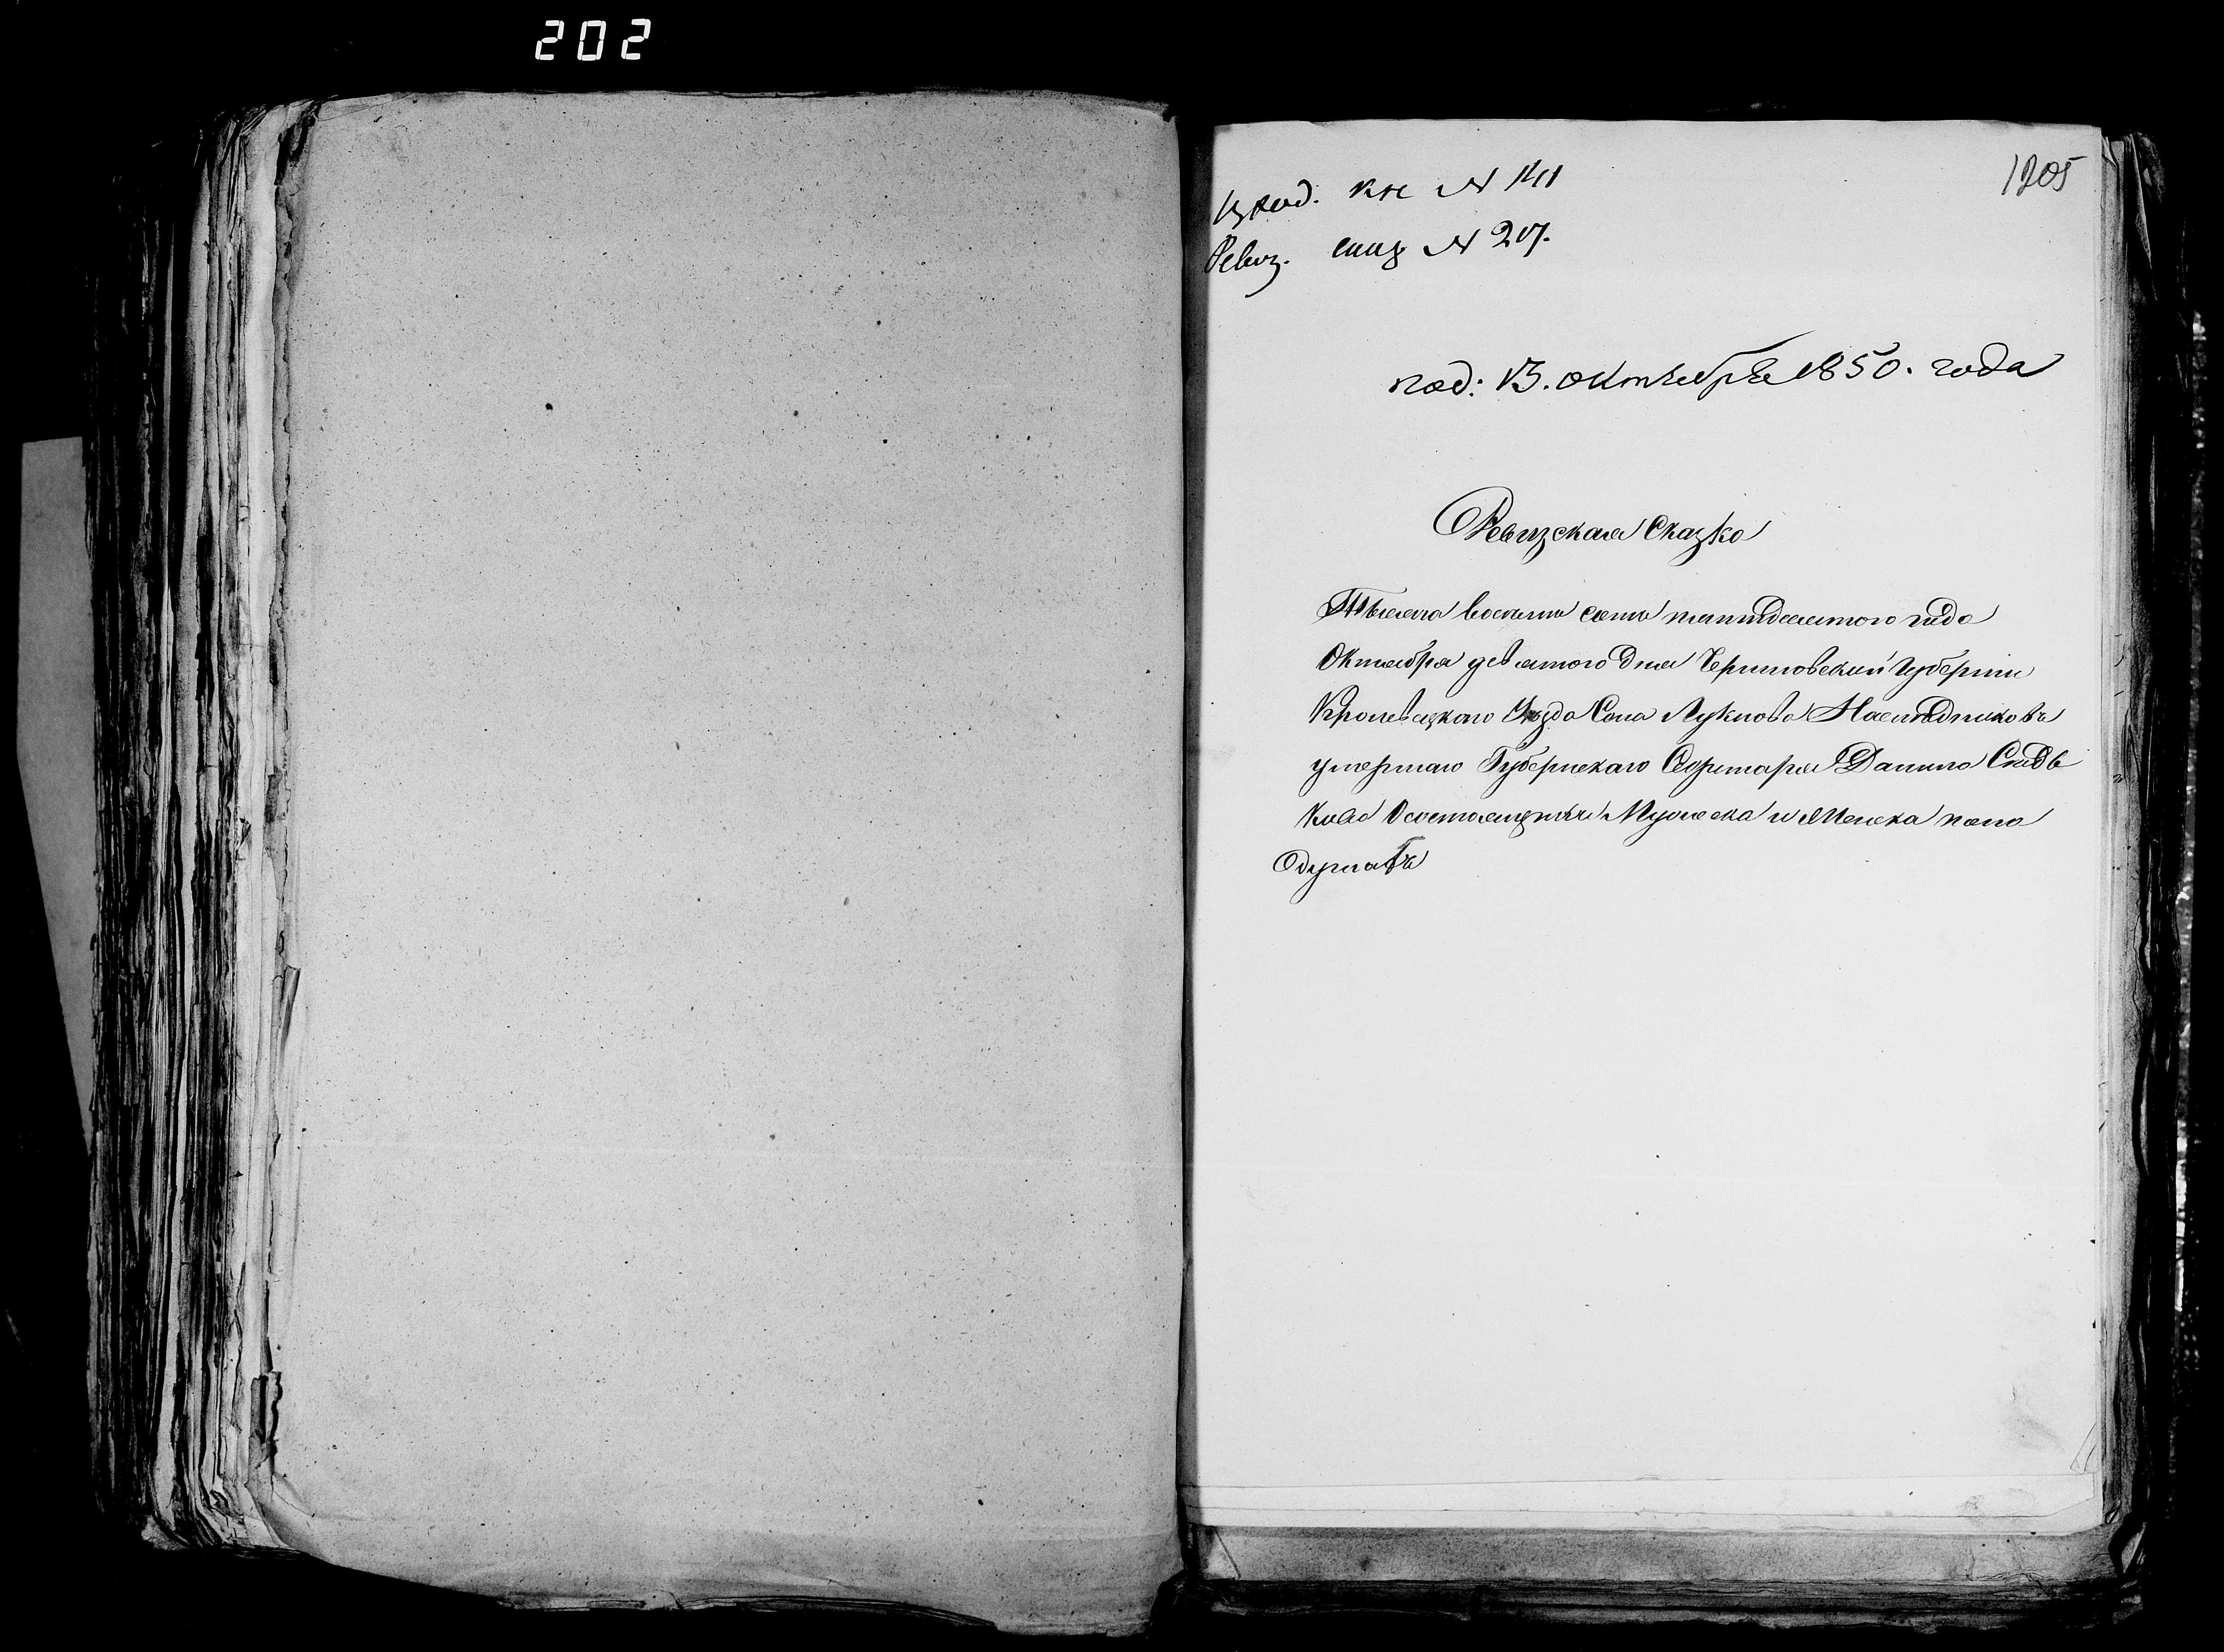 202
1205
вход. кн № 141
Ревиз. сказ № 207.
под: 13. октября 1850. года
Ревизская Сказка
Тысяча восемь сотъ пятидесятого года
Октября девятого дня Черниговской Губернии
Кролевецкаго Уезда Села Лукнова Наследниковъ
умершаго Губернскаго Секретаря Данила
о состоящихъ Мужеска и Женска пола